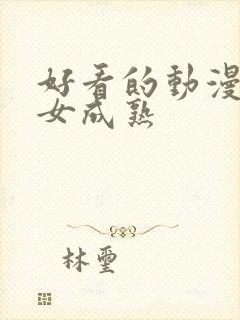 好看的動漫
女成熟
林璽